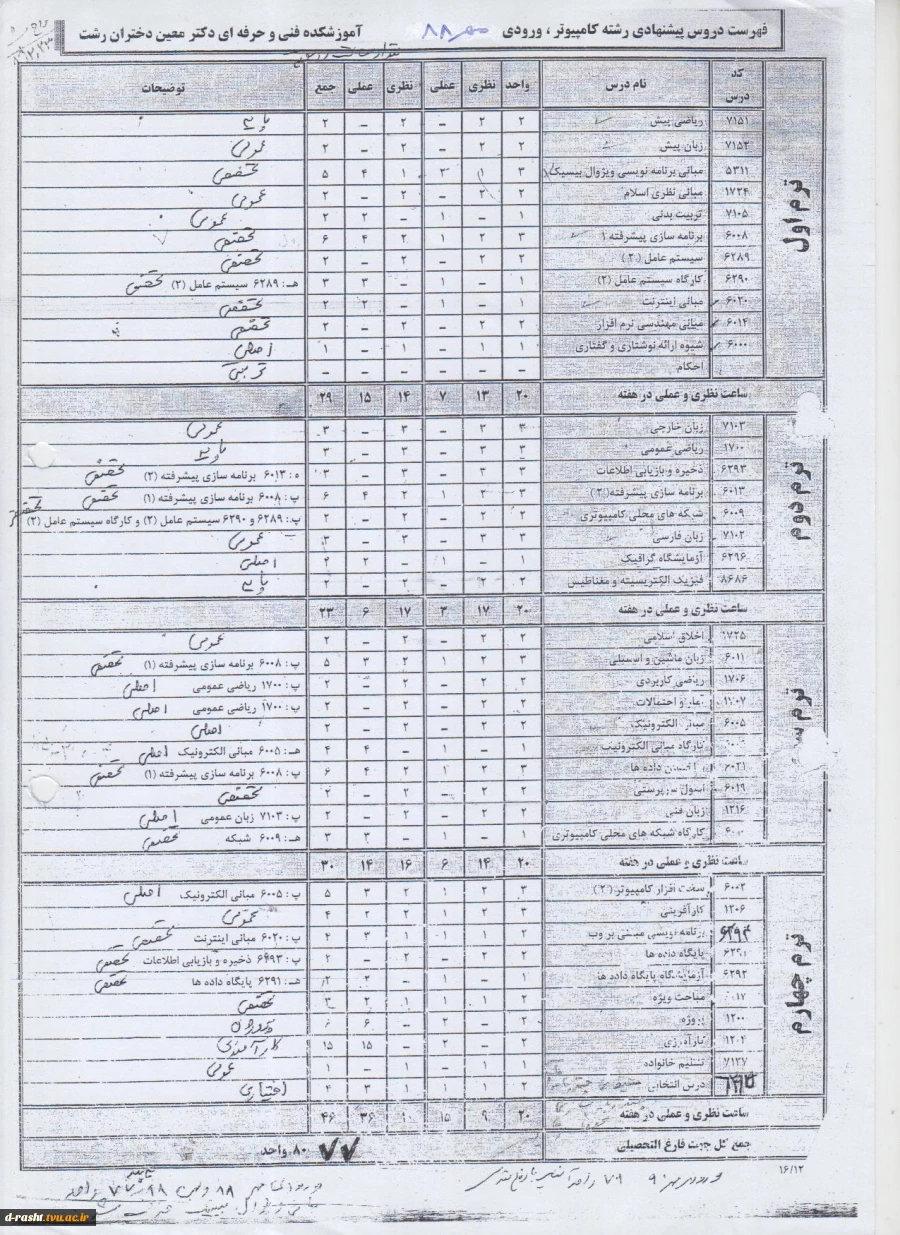 فهرست دروس پیشنهادی رشته کامپیوتر ، ورودی مهر ۸۸ آموزشکده فنی و حرفه ای دکتر معین دختران رشت
کد درس نام درس واحد نظری عملی نظری عملی جمع توضیحات
ترم اول
۷۱۵۱ ریاضی پیش ۲ ۲ – ۲ – ۲
۷۱۵۲ زبان پیش ۲ ۲ – ۲ – ۲ عمومی
۵۳۱۱ مبانی برنامه نویسی ویژوال بیسیک ۳ ۱ ۴ ۵ تخصصی
۱۷۲۴ مبانی نظری اسلام ۲ ۲ – ۲ – ۲ عمومی
۷۱۰۵ تربیت بدنی ۱ – ۱ – ۲ ۲ عمومی
۶۰۰۸ برنامه سازی پیشرفته ۱ ۳ ۲ ۱ ۲ ۴ ۶ تخصصی
۶۲۸۹ سیستم عامل (۲) ۲ ۲ – ۲ – ۲ تخصصی
۶۲۹۰ کارگاه سیستم عامل (۲) ۱ – ۱ – ۳ ۳ هـ: ۶۲۸۹ سیستم عامل (۲) تخصصی
۶۰۲۰ مبانی اینترنت ۱ – ۱ – ۲ ۲ تخصصی
۶۰۱۴ مبانی مهندسی نرم افزار ۲ ۲ – ۲ – ۲ تخصصی
۶۰۰۰ شیوه ارائه نوشتاری و گفتاری ۱ ۱ – ۱ – ۱ اصلی
احکام – – – – – –
ساعت نظری و عملی در هفته ۲۰ ۱۳ ۷ ۱۴ ۱۵ ۲۹
ترم دوم
۷۱۰۳ زبان خارجی ۳ ۳ – ۳ – ۳ عمومی
۱۷۰۰ ریاضی عمومی ۳ ۳ – ۳ – ۳
۶۲۹۳ ذخیره و بازیابی اطلاعات ۳ ۳ – ۳ – ۳ ه: ۶۰۱۳ برنامه سازی پیشرفته (۲) تخصصی
۶۰۱۳ برنامه سازی پیشرفته (۲) ۳ ۲ ۱ ۲ ۴ ۶ پ: ۶۰۰۸ برنامه سازی پیشرفته (۱) تخصصی
۶۰۰۹ شبکه های محلی کامپیوتری ۲ ۲ – ۲ – ۲ پ: ۶۲۸۹ و ۶۲۹۰ سیستم عامل (۲) و کارگاه سیستم عامل (۲) تخصصی
۷۱۰۲ زبان فارسی ۳ ۳ – ۳ – ۳ عمومی
۶۲۹۶ آزمایشگاه گرافیک ۱ – ۱ – ۲ اصلی
۸۶۸۶ فیزیک الکتریسیته و مغناطیس ۲ ۲ – ۲ – ۲
ساعت نظری و عملی در هفته ۲۰ ۱۷ ۳ ۱۷ ۶ ۲۳
۱۷۲۵ اخلاق اسلامی ۲ ۲ – ۲ – ۲ عمومی
۶۰۱۱ زبان ماشین و اسمبلی ۳ ۲ ۱ ۲ ۳ ۵ پ: ۶۰۰۸ برنامه سازی پیشرفته (۱) تخصصی
۱۷۰۶ ریاضی کاربردی ۲ ۲ – ۲ – ۲ پ: ۱۷۰۰ ریاضی عمومی اصلی
آمار و احتمالات ۲ ۲ – ۲ – ۲ پ: ۱۷۰۰ ریاضی عمومی اصلی
۶۰۰۵ مبانی الکترونیک ۲ ۲ – ۲ – ۲ اصلی
کارگاه مبانی الکترونیک ۱ – ۱ – ۴ ۴ هـ: ۶۰۰۵ مبانی الکترونیک اصلی
۶۰۲۱ داده ها ۳ ۲ ۱ ۲ ۴ ۶ پ: ۶۰۰۸ برنامه سازی پیشرفته (۱) تخصصی
۶۰۱۹ اصول سرپرستی ۲ ۲ – ۲ – ۲ تخصصی
۱۲۱۶ زبان فنی ۲ ۲ – ۲ – ۲ پ: ۷۱۰۳ زبان عمومی اصلی
کارگاه شبکه های محلی کامپیوتری ۱ – ۱ – ۳ ۳ هـ: ۶۰۰۹ شبکه تخصصی
ساعت نظری و عملی در هفته ۲۰ ۱۴ ۶ ۱۶ ۱۴ ۳۰
ترم چهارم
۶۰۰۲ سخت افزار کامپیوتر (۲) ۳ ۲ ۱ ۲ ۳ ۵ پ: ۶۰۰۵ مبانی الکترونیک اصلی
۱۲۰۶ کارآفرینی ۳ ۲ ۱ ۲ ۲ ۴ عمومی
۶۲۹۴ برنامه نویسی مبتنی بر وب ۲ ۱ ۱ ۱ ۳ ۴ پ: ۶۰۲۰ مبانی اینترنت تخصصی
پایگاه داده ها ۲ ۲ – ۲ – ۲ پ: ۶۲۹۳ ذخیره و بازیابی اطلاعات تخصصی
۶۲۹۲ آزمایشگاه پایگاه داده ها ۱ – ۱ – ۲ ۲ هـ: ۶۲۹۱ پایگاه داده ها تخصصی
مباحث ویژه ۲ ۱ ۱ ۱ ۲ ۳ تخصصی
۱۲۰۰ پروژه ۲ – ۲ – ۶ ۶ پروژه
۱۲۰۴ کارآموزی ۲ – ۲ – ۱۵ ۱۵ کارآموزی
۷۱۲۷ تنظیم خانواده ۱ ۱ – ۱ – ۱ عمومی
درس انتخابی ۲ ۱ ۱ ۱ ۳ ۴ اختیاری
ساعت نظری و عملی در هفته ۲۰ ۹ ۳۶ ۴۶
جمع کل جهت فارغ التحصیلی ۸۰ واحد ۷۷
۱۶/۱۲
d-rasht.tvu.ac.ir